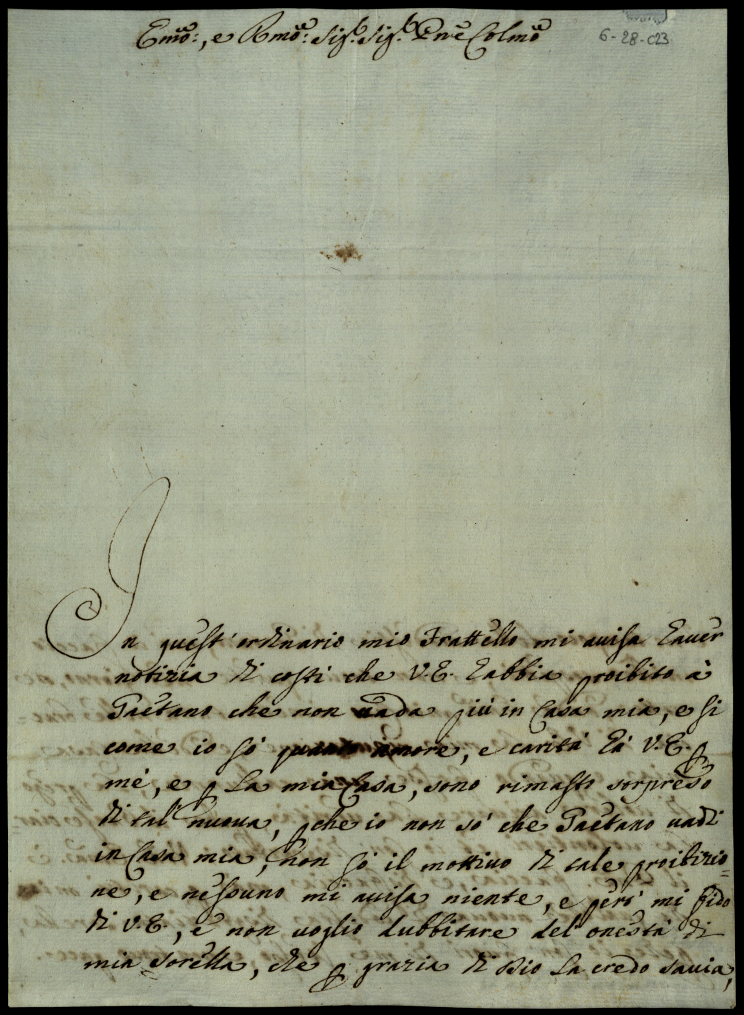 Emo:, e Rmo: Sig.r Sig.r Pne Colmo
6-28-C23
In quest'ordinario mio Frattello mi avisa haver
notizia di costi che V.E. habbia proibito à
Taetano che non vada più in Casa mia, e si
come io só quanto amore, e carità hà V.E. p
mé, e p La mia Casa, sono rimasto sorpreso
di tal nuova, pche io non só che Taetano vadi
in Casa mia, non só il mottivo di tale proibizio=
ne, e nessuno mi avisa niente, e peró mi fido
di V.E., e non voglio dubbitare del onestà di
mia sorella, che p grazia di Dio La credo savia,